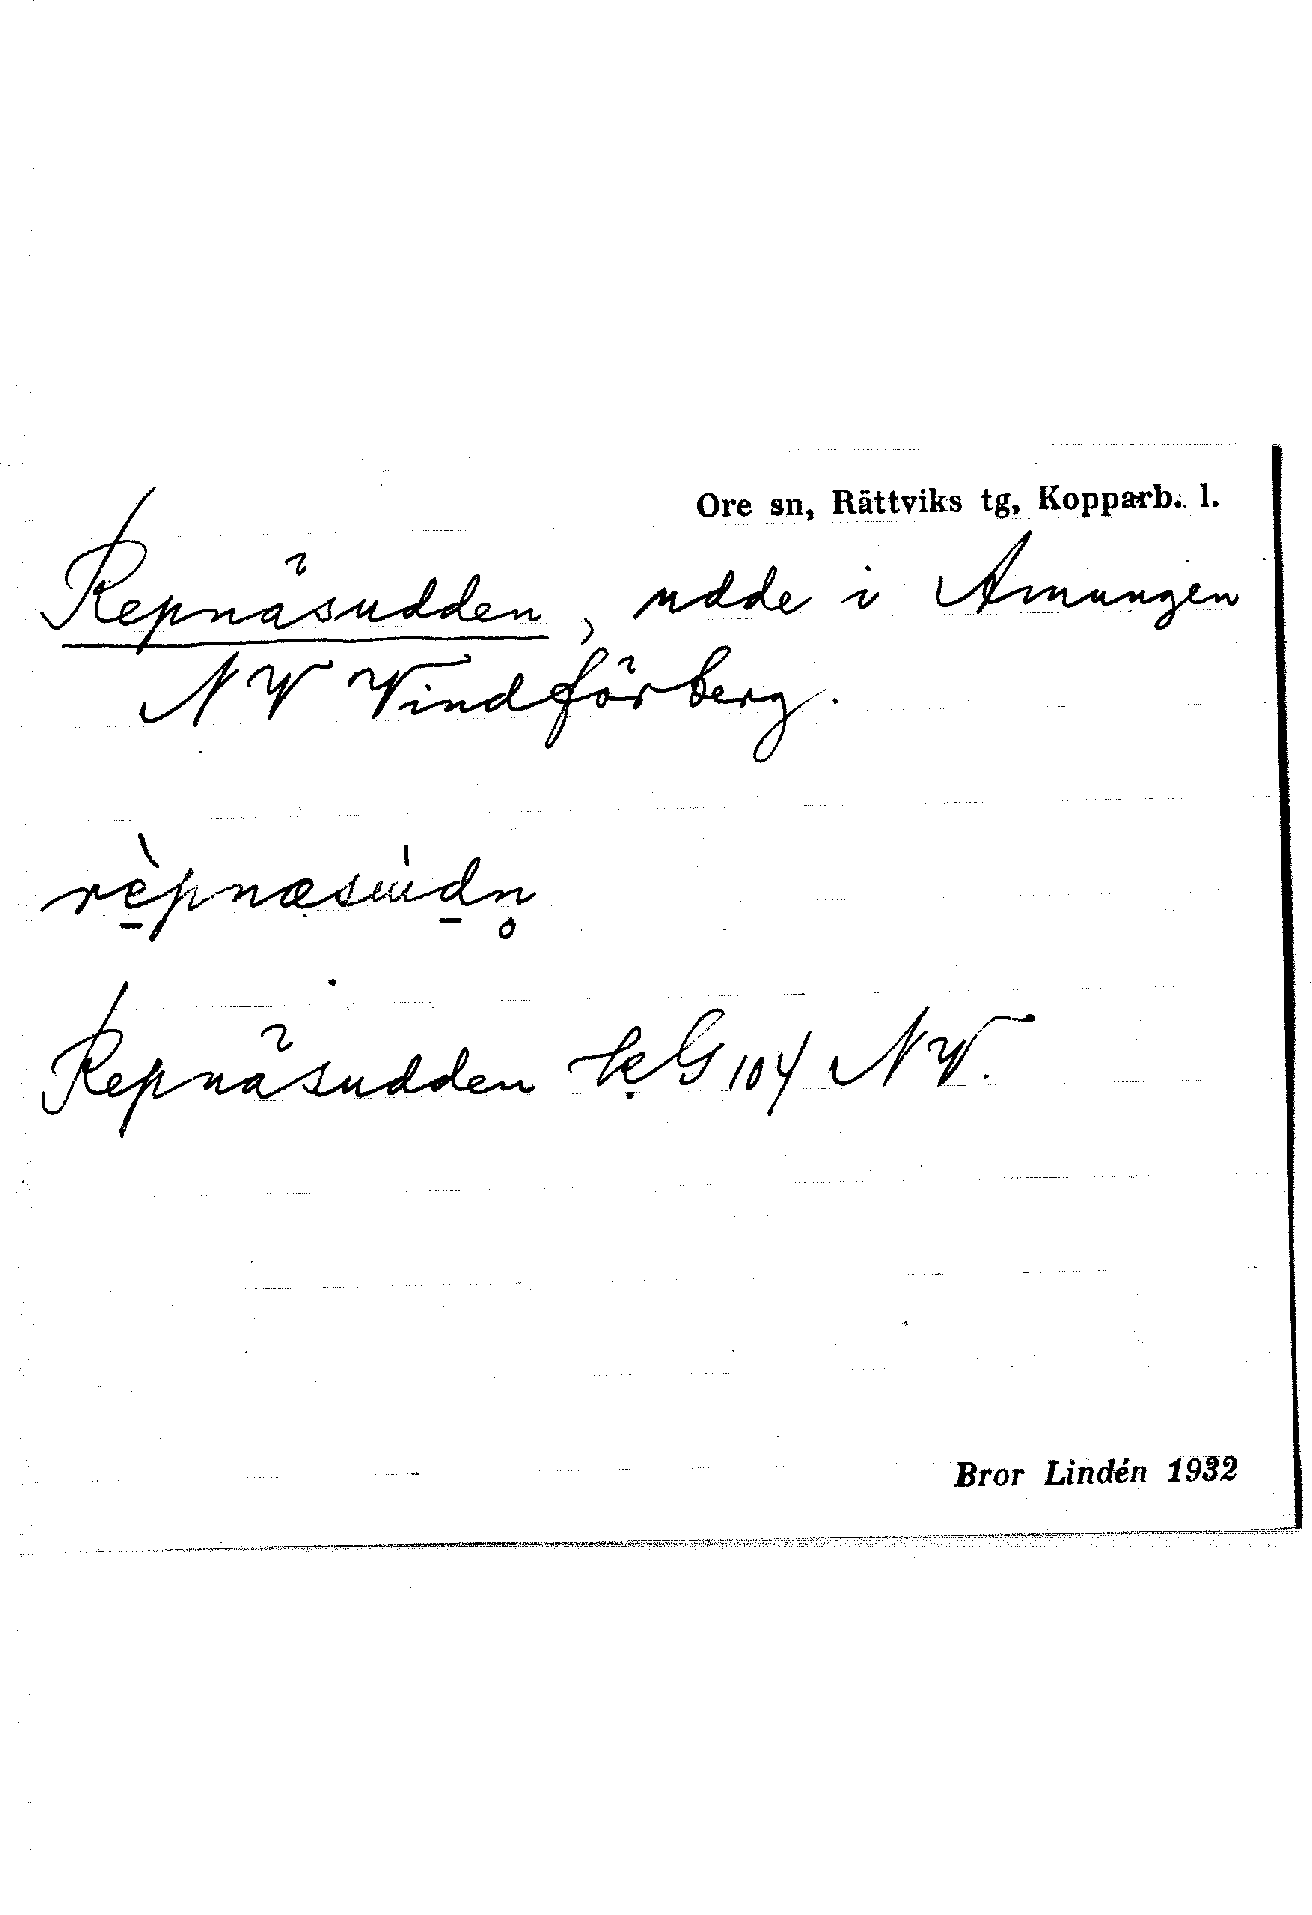 Ore sn, Rättviks tg, Kopparb. l.
Repnäsudden, udde i Amungen
NV Vindförberg.
rè̱pnæsɯ́d̠n̥
Repnäsudden kG 104 NV.
Bror Lindén 1932